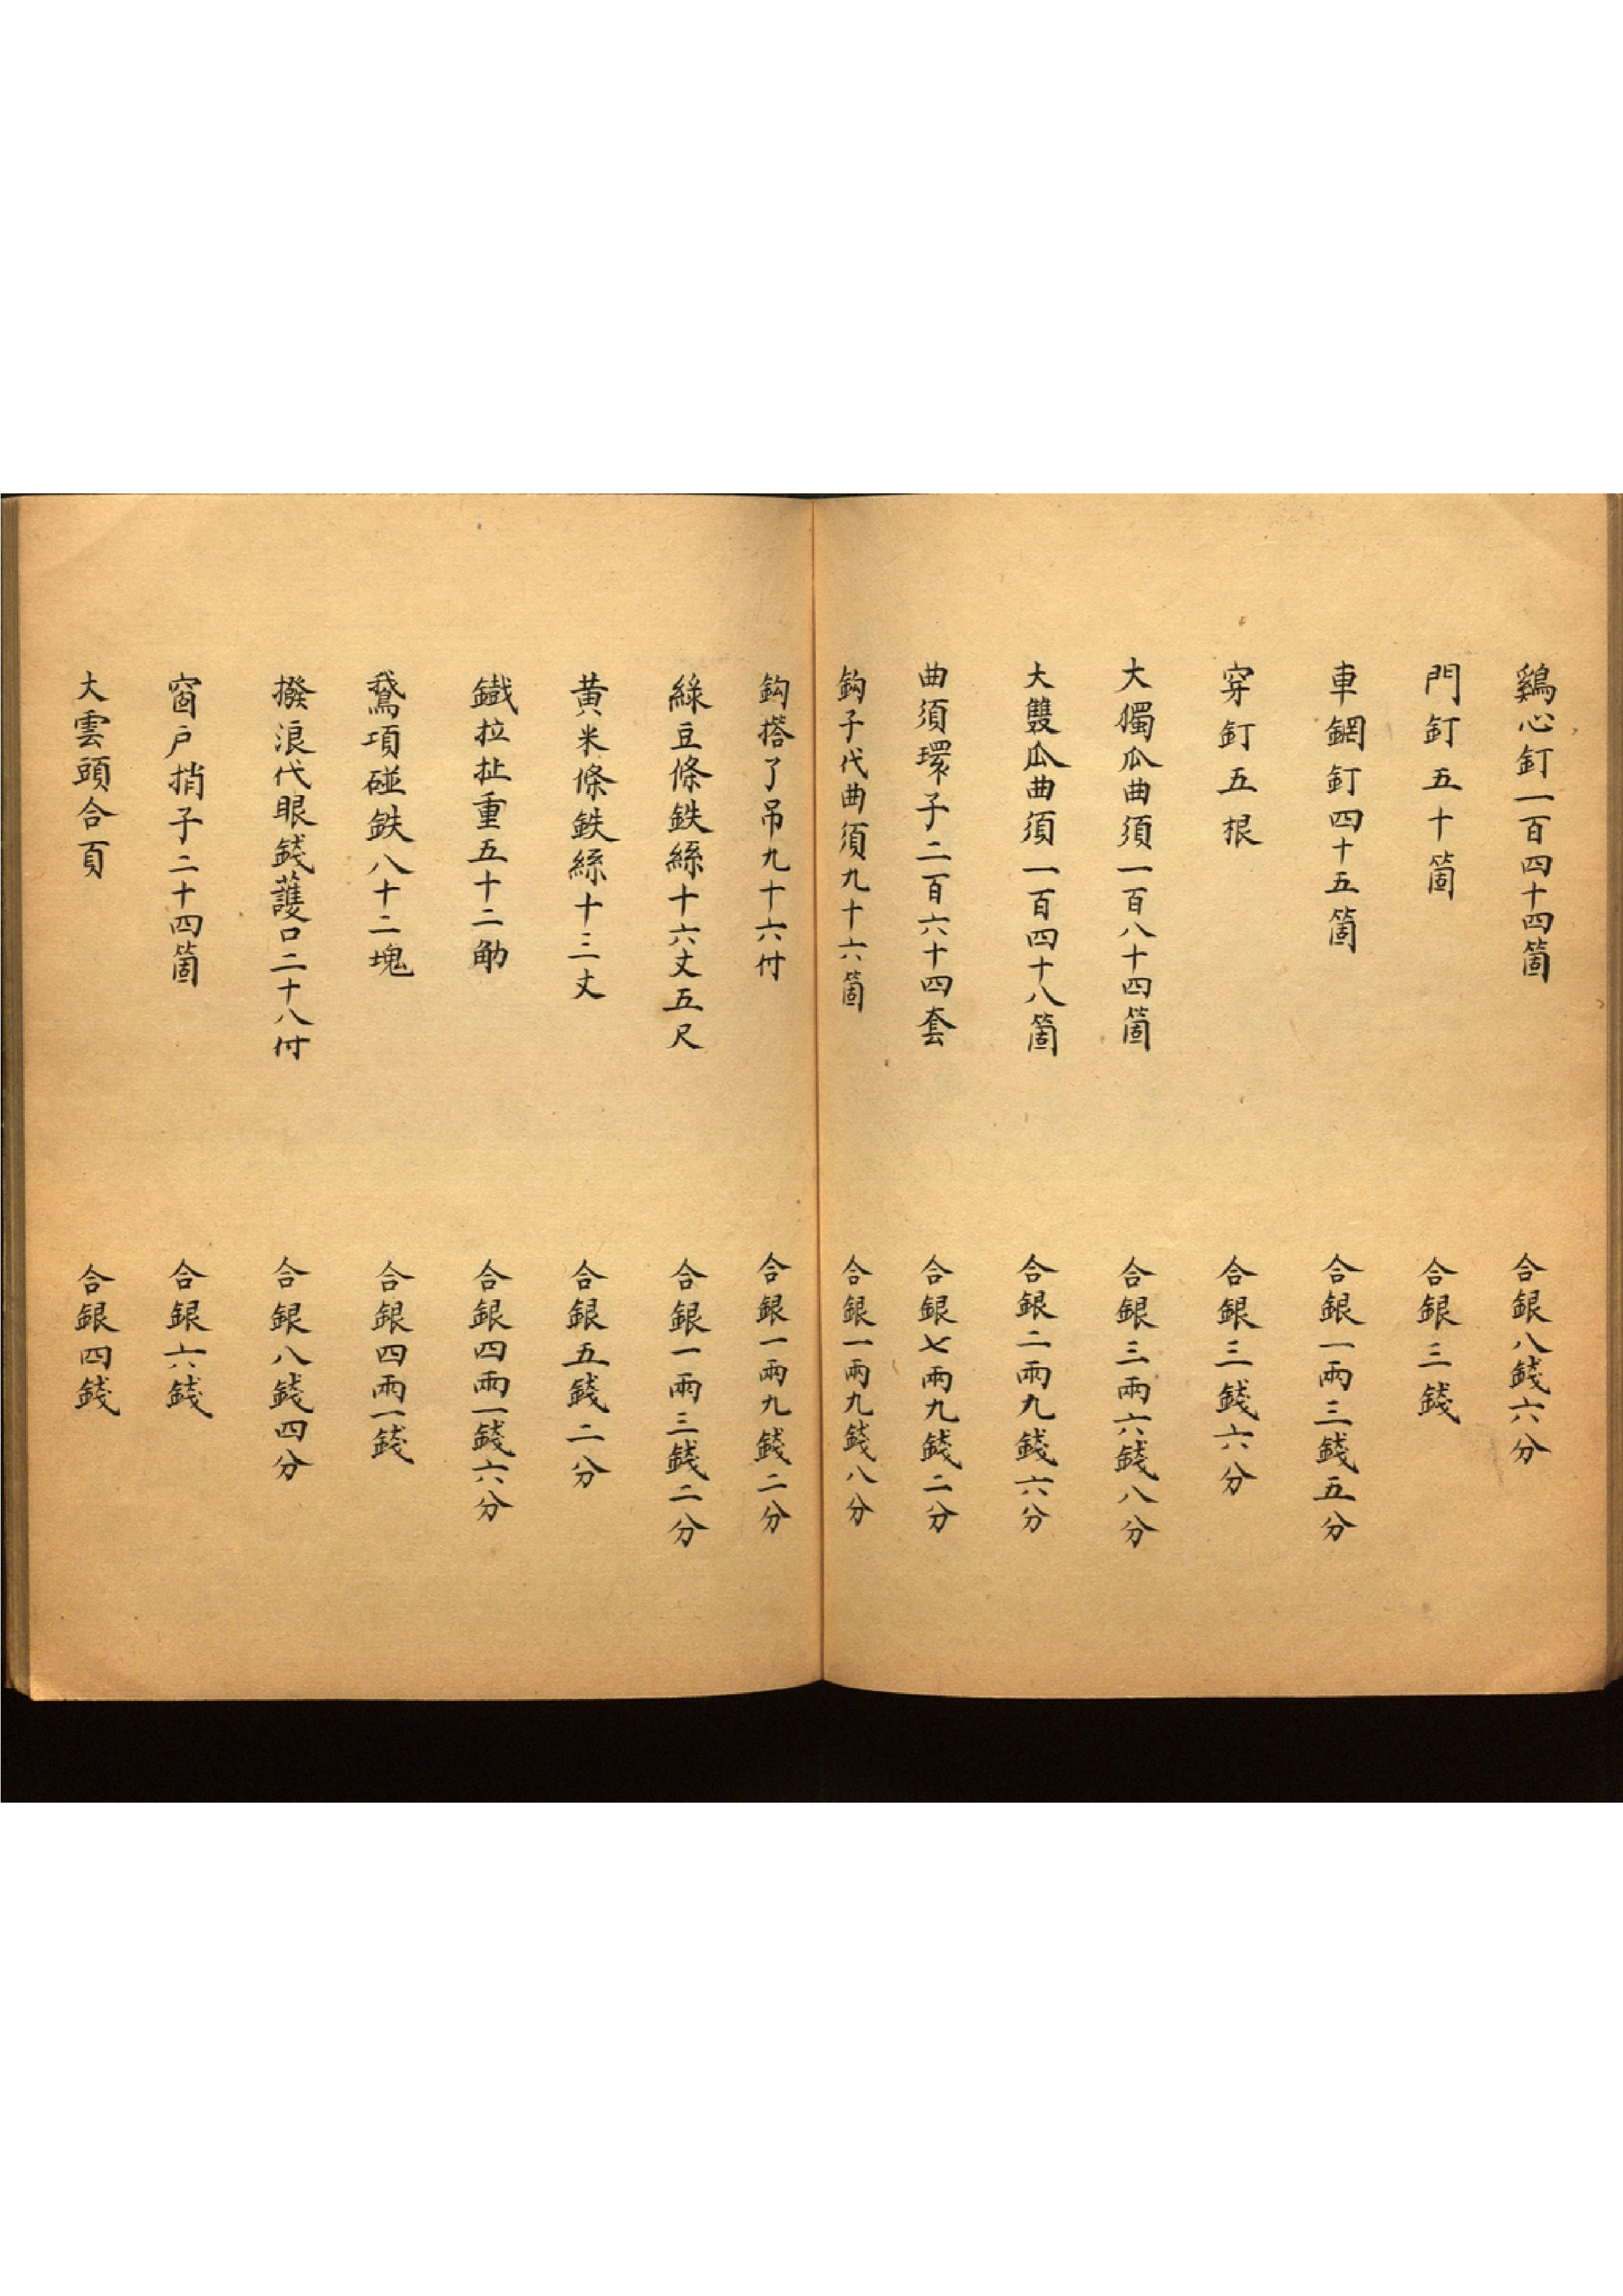 鷄心釘一百四十四箇　合銀八錢六分
門釘五十箇　合銀三錢
車鋼釘四十五箇　合銀一兩三錢五分
穿釘五根　合銀三錢六分
大獨瓜曲須一百八十四箇　合銀三兩六錢八分
大雙瓜曲須一百四十八箇　合銀二兩九錢六分
曲須環子二百六十四套　合銀七兩九錢二分
鈎子代曲須九十六箇　合銀一兩九錢八分
鈎搭了吊九十六付　合銀一兩九錢二分
綠豆條鉄絲十六丈五尺　合銀一兩三錢二分
黃米條鉄絲十三丈　合銀五錢二分
鐵拉扯重五十二觔　合銀四兩一錢六分
鵞項碰鉄八十二塊　合銀四兩一錢
撥浪代眼錢護口二十八付　合銀八錢四分
窗戶捎子二十四箇　合銀六錢
大雲頭合頁　合銀四錢